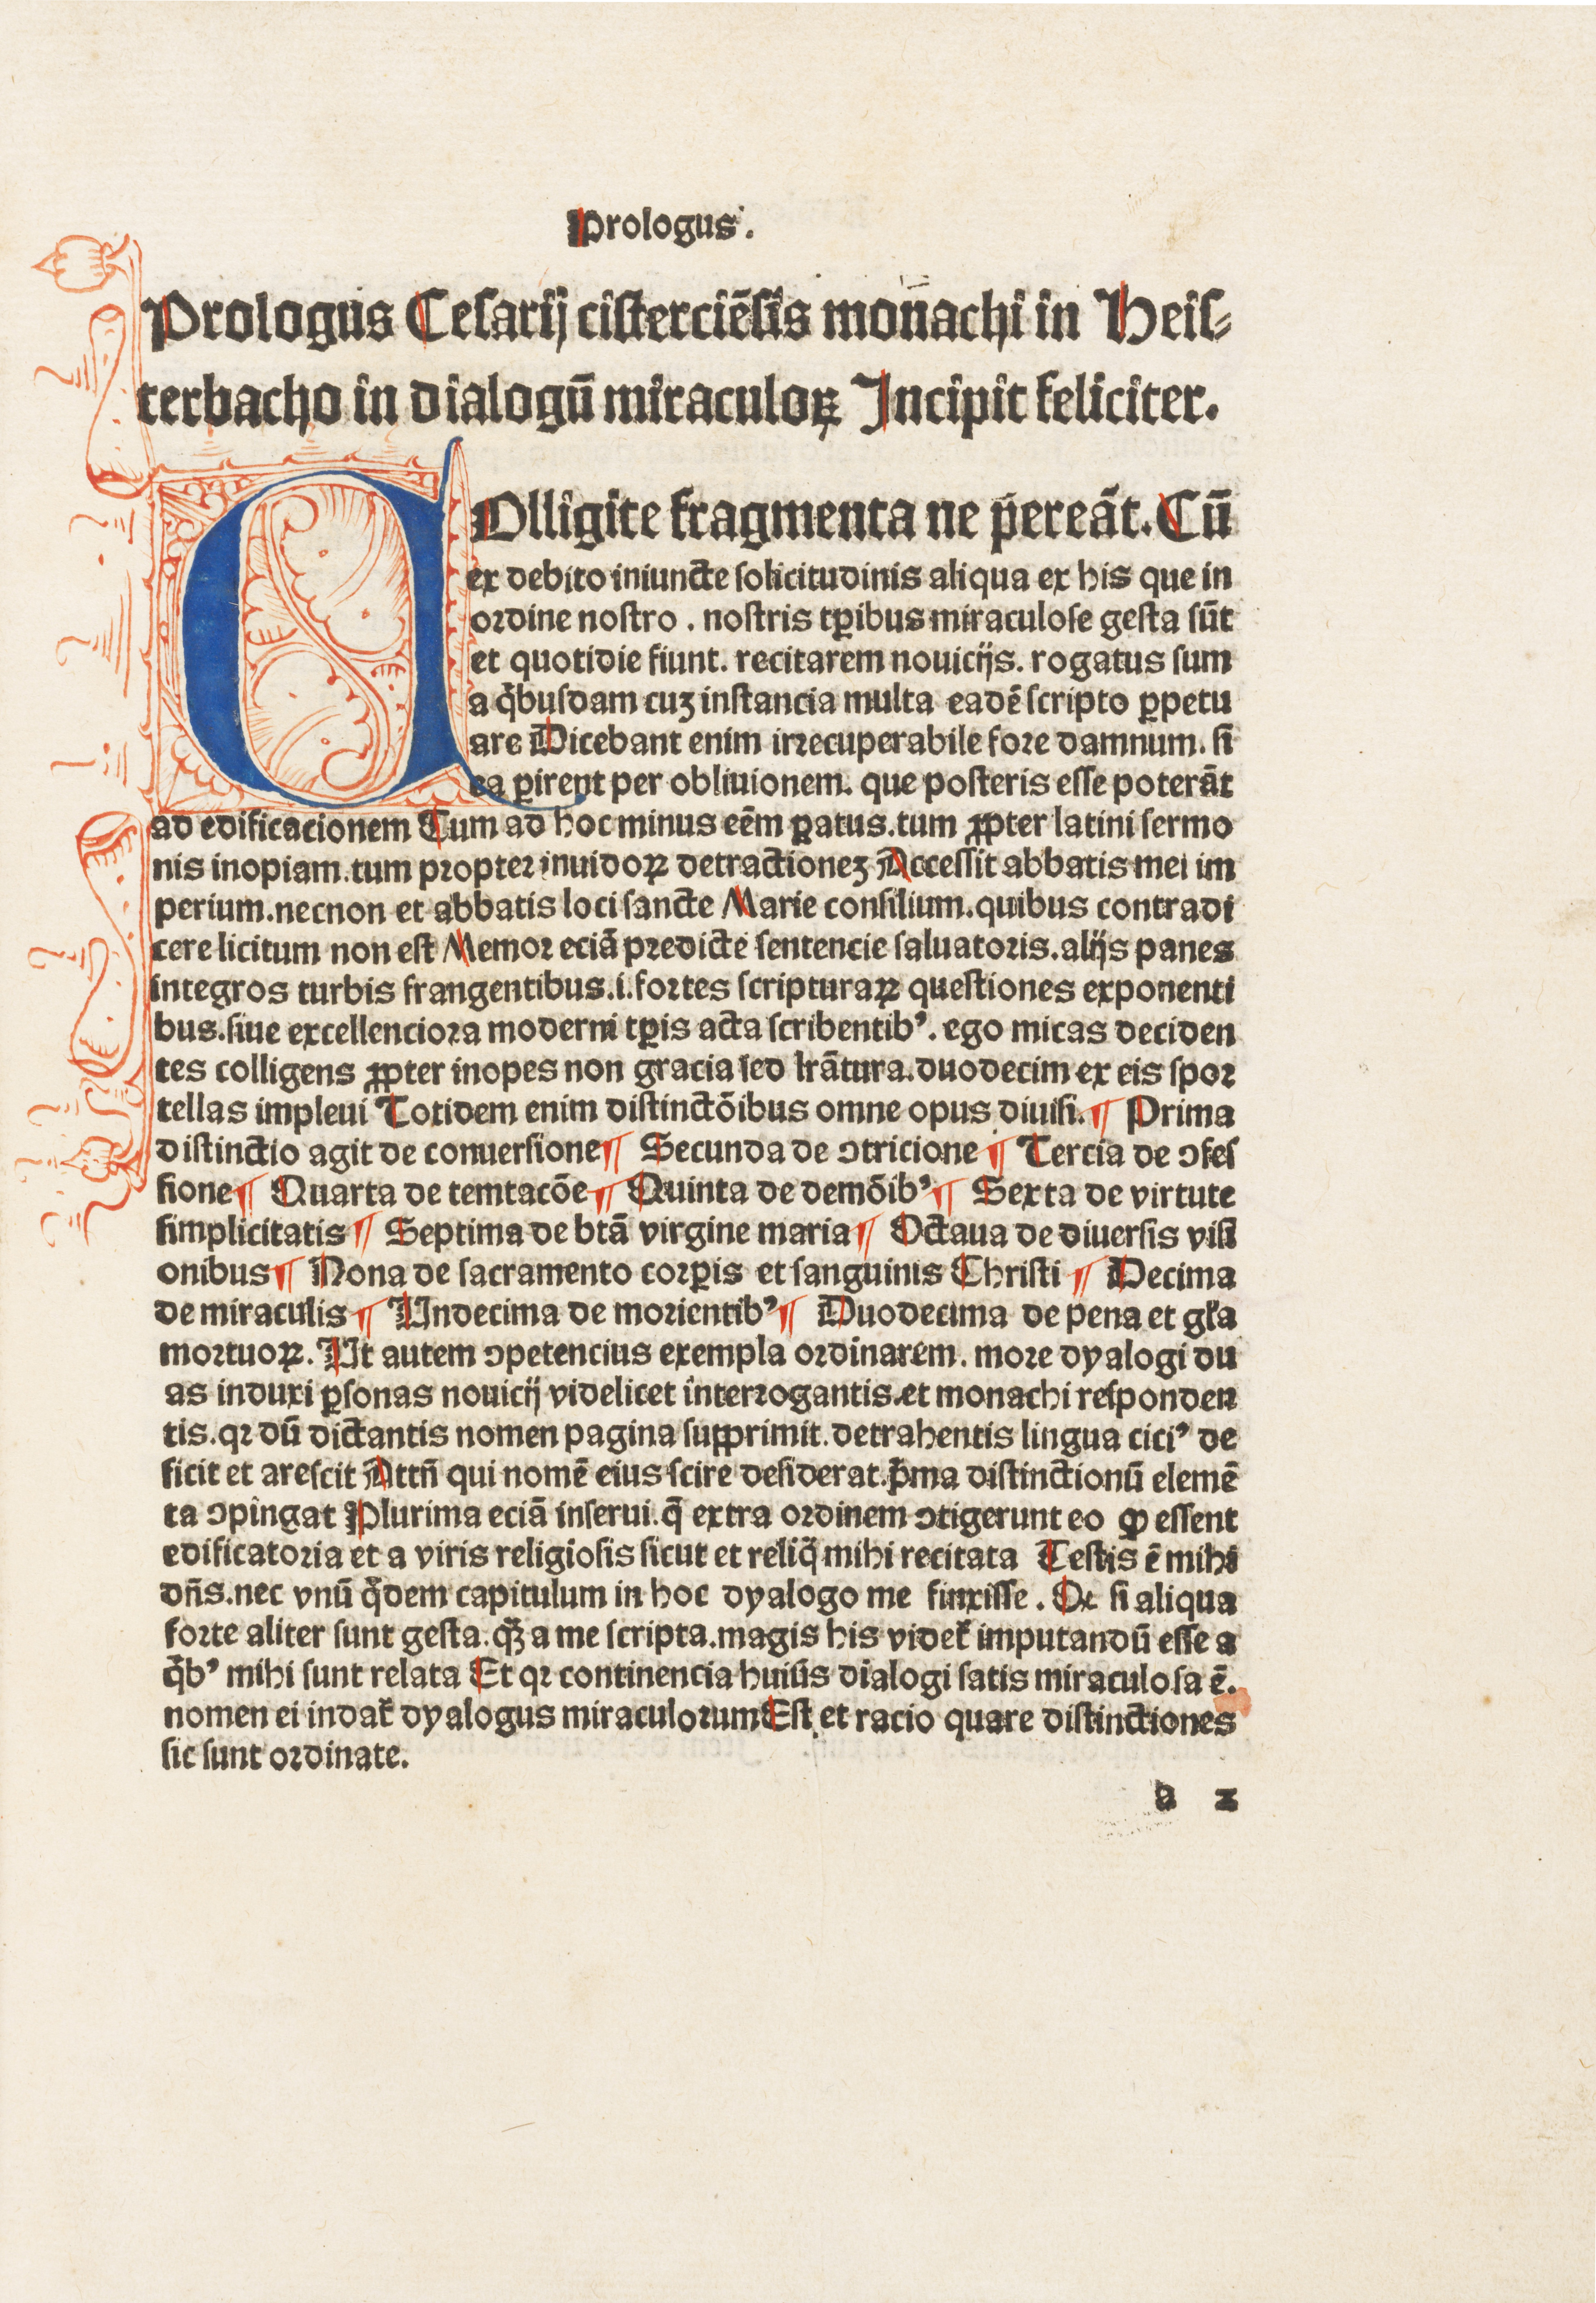 Prologus.
Prologus Cesarij cisterciēsis monachi in Heis-
terbacho in dialogū miraculoꝝ Incipit feliciter.
COlligite fragmenta ne pereāt. Cū
ex debito iniuncte solicitudinis aliqua ex his que in
ordine nostro . nostris tꝑibus miraculose gesta sūt
et quotidie fiunt. recitarem nouicijs. rogatus sum
a q̄busdam cuꝫ instancia multa eadē scripto ꝑpetu
are Dicebant enim irrecuperabile fore damnum. si
ea ꝑirent per obliuionem. que posteris esse poterāt
ad edificacionem Cum ad hoc minus eēm ꝑatus. tum ꝓpter latini sermo
nis inopiam. tum propter inuidoꝝ detractioneꝫ Accessit abbatis mei im
perium. necnon et abbatis loci sancte Marie consilium. quibus contradi
cere licitum non est Memor eciā predicte sentencie saluatoris. alijs panes
integros turbis frangentibus. i. fortes scripturaꝝ questiones exponenti
bus. siue excellenciora moderni tꝑis acta scribentibꝰ. ego micas deciden
tes colligens ꝓpter inopes non gracia sed lrātura. duodecim ex eis spor
tellas impleui Totidem enim distinctōibus omne opus diuisi. ¶ Prima
distinctio agit de conuersione ¶ Secunda de ꝯtricione ¶ Tercia de ꝯfes
sione ¶ Quarta de temtacōe ¶ Quinta de demōibꝰ ¶ Sexta de virtute
simplicitatis ¶ Septima de btā virgine maria ¶ Octaua de diuersis visi
onibus ¶ Nona de sacramento corꝑis et sanguinis Christi ¶ Decima
de miraculis ¶ Undecima de morientibꝰ ¶ Duodecima de pena et gl̄a
mortuoꝝ. Ut autem ꝯpetencius exempla ordinarem. more dyalogi du
as induxi ꝑsonas nouicij videlicet interrogantis. et monachi responden
tis. qr dū dictantis nomen pagina supprimit. detrahentis lingua ciciꝰ de
ficit et arescit Attn̄ qui nomē eius scire desiderat. p̄ma distinctionū elemē
ta ꝯpingat Plurima eciā inserui. q̄ extra ordinem ꝯtigerunt eo ꝙ essent
edificatoria et a viris religiosis sicut et reliq̄ mihi recitata Testis ē mihi
dn̄s. nec vnū q̄dem capitulum in hoc dyalogo me finxisse. Qc si aliqua
forte aliter sunt gesta. q̄ꝫ a me scripta. magis his videt̄ imputandū esse a
q̄bꝰ mihi sunt relata Et qr continencia huiūs dialogi satis miraculosa ē.
nomen ei indat̄ dyalogus miraculorum Est et racio quare distinctiones
sic sunt ordinate.
a 2